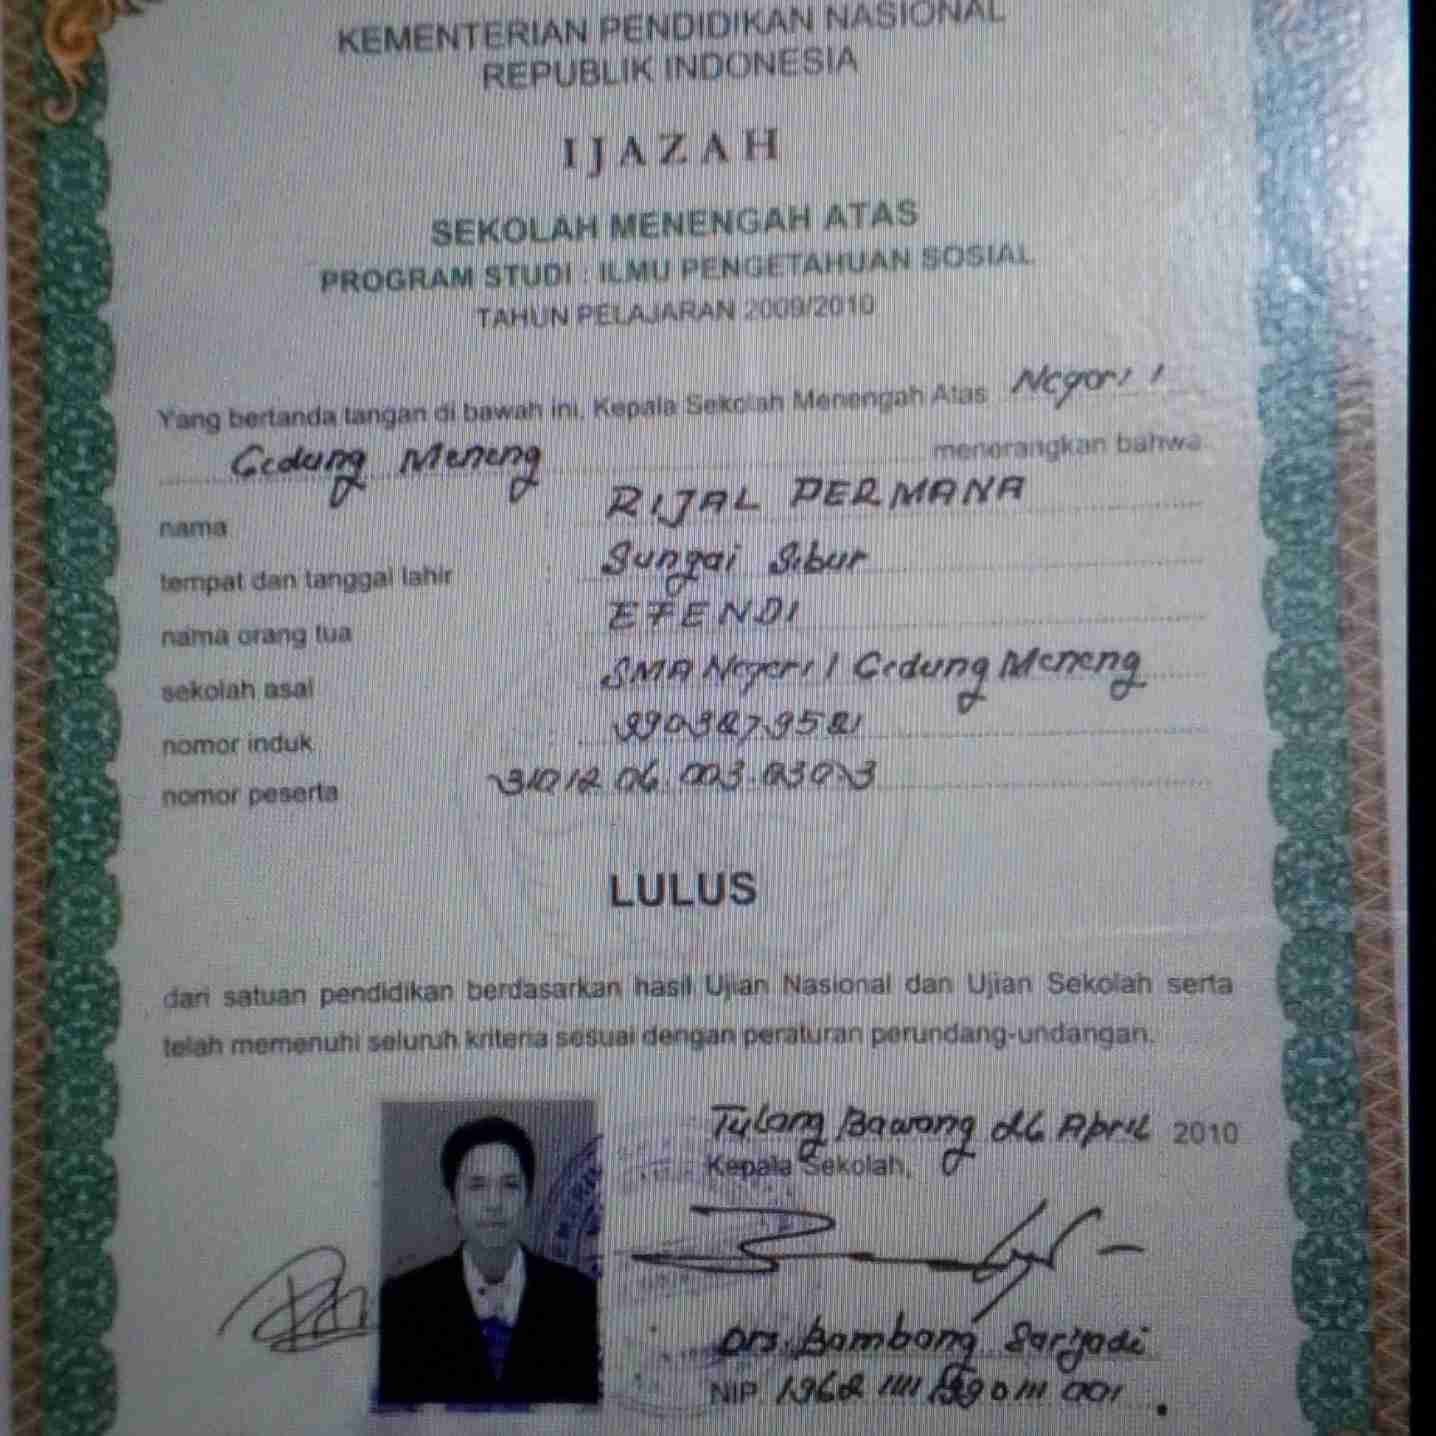 KEMENTERIAN PENDIDIKAN NASIONAL
REPUBLIK INDONESIA
IJAZAH
SEKOLAH MENENGAH ATAS
PROGRAM STUDI : ILMU PENGETAHUAN SOSIAL
TAHUN PELAJARAN 2009/2010
Yang bertanda tangan di bawah ini, Kepala Sekolah Menengah Atas Negeri 1
Gedung Meneng menerangkan bahwa
nama RIJAL PERMANA
tempat dan tanggal lahir : Sungai Sibur
nama orang tua EFENDI
sekolah asal : SMA Negeri 1 Gedung Meneng
nomor induk :
nomor peserta
LULUS
dari satuan pendidikan berdasarkan hasil Ujian Nasional dan Ujian Sekolah serta
telah memenuhi seluruh kriteria sesuai dengan peraturan perundang-undangan.
Tulang Bawang 26 April 2010
Kepala Sekolah,
Drs. Bambang Sariyadi
NIP